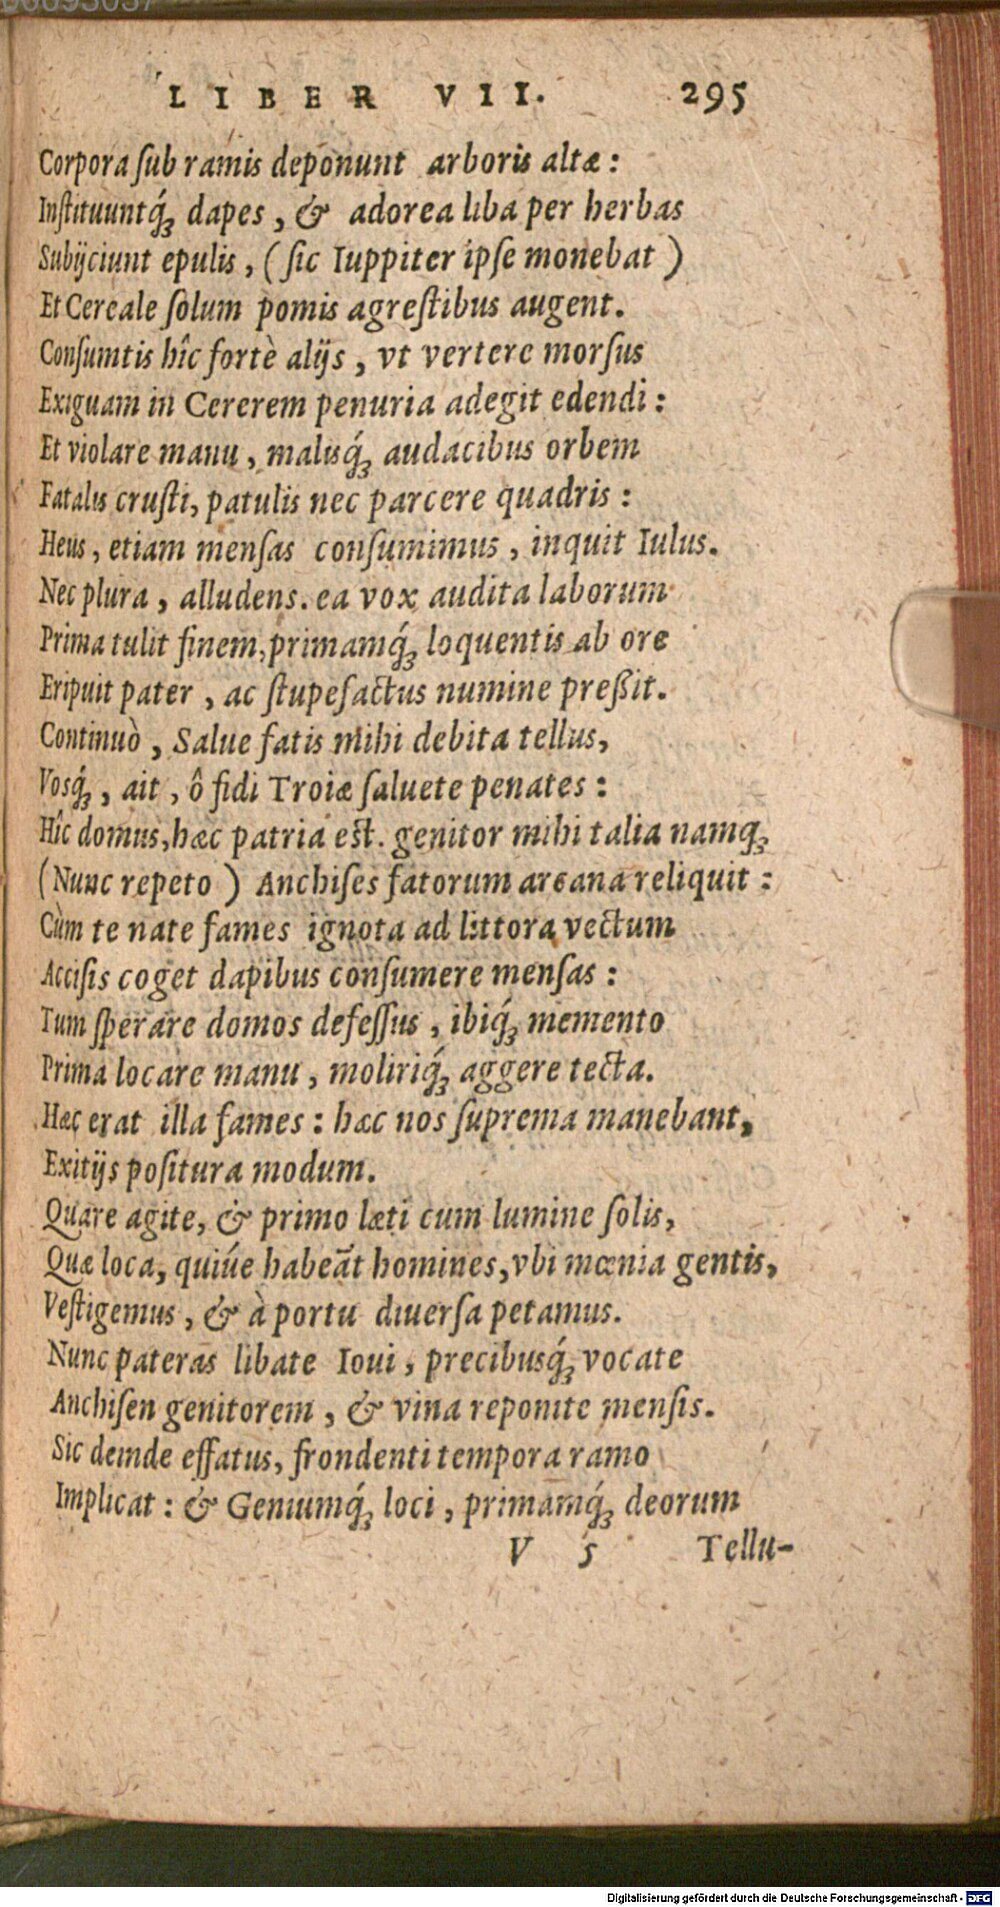 LIBER VII. 295
Corpora ſub ramis deponunt arboris altæ :
Inſtituuntq́ꝫ dapes , & adorea liba per herbas
Subijciunt epulis , ( ſic Iuppiter ipſe monebat )
Et Cereale ſolum pomis agreſtibus augent.
Conſumtis hîc fortè alijs , vt vertere morſus
Exiguam in Cererem penuria adegit edendi :
Et violare manu , malisq́ꝫ audacibus orbem
Fatalis cruſti, patulis nec parcere quadris :
Heus , etiam menſas conſumimus , inquit Iulus.
Nec plura , alludens. ea vox audita laborum
Prima tulit finem, primamq́ꝫ loquentis ab ore
Eripuit pater , ac ſtupefactus numine preßit.
Continuò , Salue fatis mihi debita tellus,
Vosq́ꝫ , ait , ô fidi Troiæ ſaluete penates :
Hîc domus, hæc patria eſt. genitor mihi talia namqꝫ
(Nunc repeto ) Anchiſes fatorum arcana reliquit :
Cùm te nate fames ignota ad littora vectum
Acciſis coget dapibus conſumere menſas :
Tum ſperare domos defeſſus , ibiq́ꝫ memento
Prima locare manu , moliriq́ꝫ aggere tecta.
Hæc erat illa fames : hæc nos ſuprema manebant,
Exitijs poſitura modum.
Quare agite, & primo læti cum lumine ſolis,
Quæ loca, quiúe habeāt homines, vbi mœnia gentis,
Veſtigemus , & à portu diuerſa petamus.
Nunc pateras libate Ioui , precibusq́ꝫ vocate
Anchiſen genitorem , & vina reponite menſis.
Sic deinde effatus, frondenti tempora ramo
Implicat : & Geniumq́ꝫ loci , primamq́ꝫ deorum
V 5 Tellu-
Digitalisierung gefördert durch die Deutsche Forschungsgemeinschaft - DFG